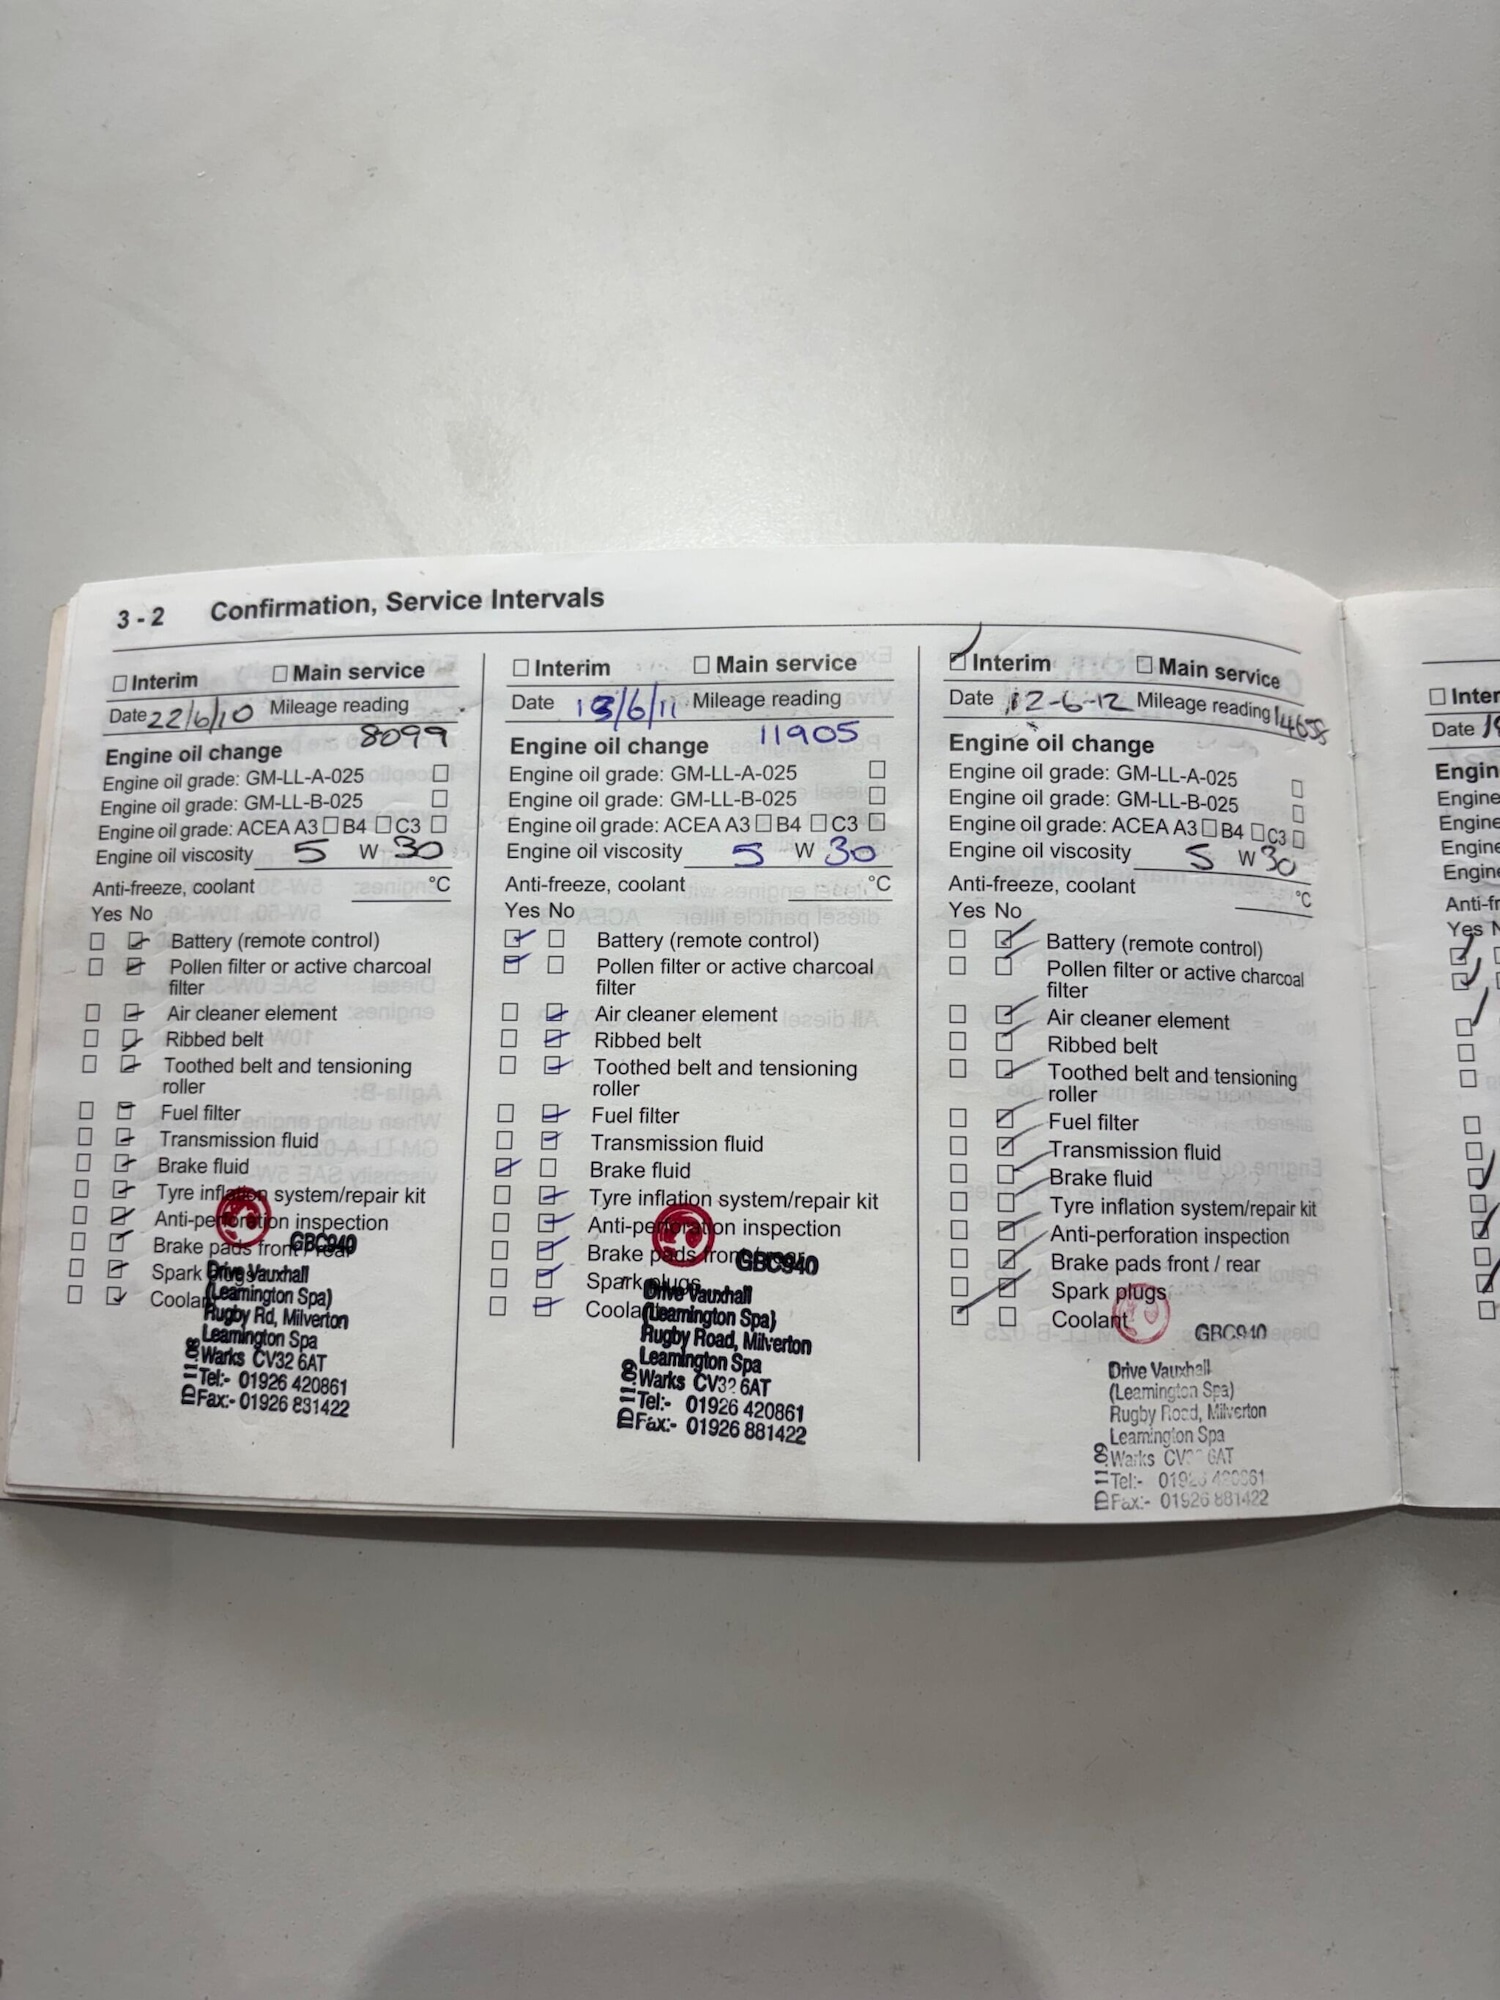 3 - 2 Confirmation, Service Intervals
Interim Main service
Date 22/6/10 Mileage reading
8099
Engine oil change
Engine oil grade: GM-LL-A-025
Engine oil grade: GM-LL-B-025
Engine oil grade: ACEA A3 B4 C3
Engine oil viscosity 5 W 30
Anti-freeze, coolant °C
Yes No
Battery (remote control)
Pollen filter or active charcoal
filter
Air cleaner element
Ribbed belt
Toothed belt and tensioning
roller
Fuel filter
Transmission fluid
Brake fluid
Tyre inflation system/repair kit
Anti-perforation inspection
Brake pads front / rear
GBC940
Spark
Coolant
Drive Vauxhall
(Leamington Spa)
Rugby Rd, Milverton
Leamington Spa
Warks CV32 6AT
Tel:- 01926 420861
Fax:- 01926 881422
Interim Main service
Date 13/6/11 Mileage reading
11905
Engine oil change
Engine oil grade: GM-LL-A-025
Engine oil grade: GM-LL-B-025
Engine oil grade: ACEA A3 B4 C3
Engine oil viscosity 5 W 30
Anti-freeze, coolant °C
Yes No
Battery (remote control)
Pollen filter or active charcoal
filter
Air cleaner element
Ribbed belt
Toothed belt and tensioning
roller
Fuel filter
Transmission fluid
Brake fluid
Tyre inflation system/repair kit
Anti-perforation inspection
Brake pads front / rear
GBC940
Spark plugs
Coolant
Drive Vauxhall
(Leamington Spa)
Rugby Road, Milverton
Leamington Spa
Warks CV32 6AT
Tel:- 01926 420861
Fax:- 01926 881422
Interim Main service
Date 12-6-12 Mileage reading 14658
Engine oil change
Engine oil grade: GM-LL-A-025
Engine oil grade: GM-LL-B-025
Engine oil grade: ACEA A3 B4 C3
Engine oil viscosity 5 W 30
Anti-freeze, coolant °C
Yes No
Battery (remote control)
Pollen filter or active charcoal
filter
Air cleaner element
Ribbed belt
Toothed belt and tensioning
roller
Fuel filter
Transmission fluid
Brake fluid
Tyre inflation system/repair kit
Anti-perforation inspection
Brake pads front / rear
Spark plugs
Coolant
GBC940
Drive Vauxhall
(Leamington Spa)
Rugby Road, Milverton
Leamington Spa
Warks CV32 6AT
Tel:- 01926 420861
Fax:- 01926 881422
Inter
Date
Engin
Engine
Engine
Engine
Engine
Anti-fr
Yes N